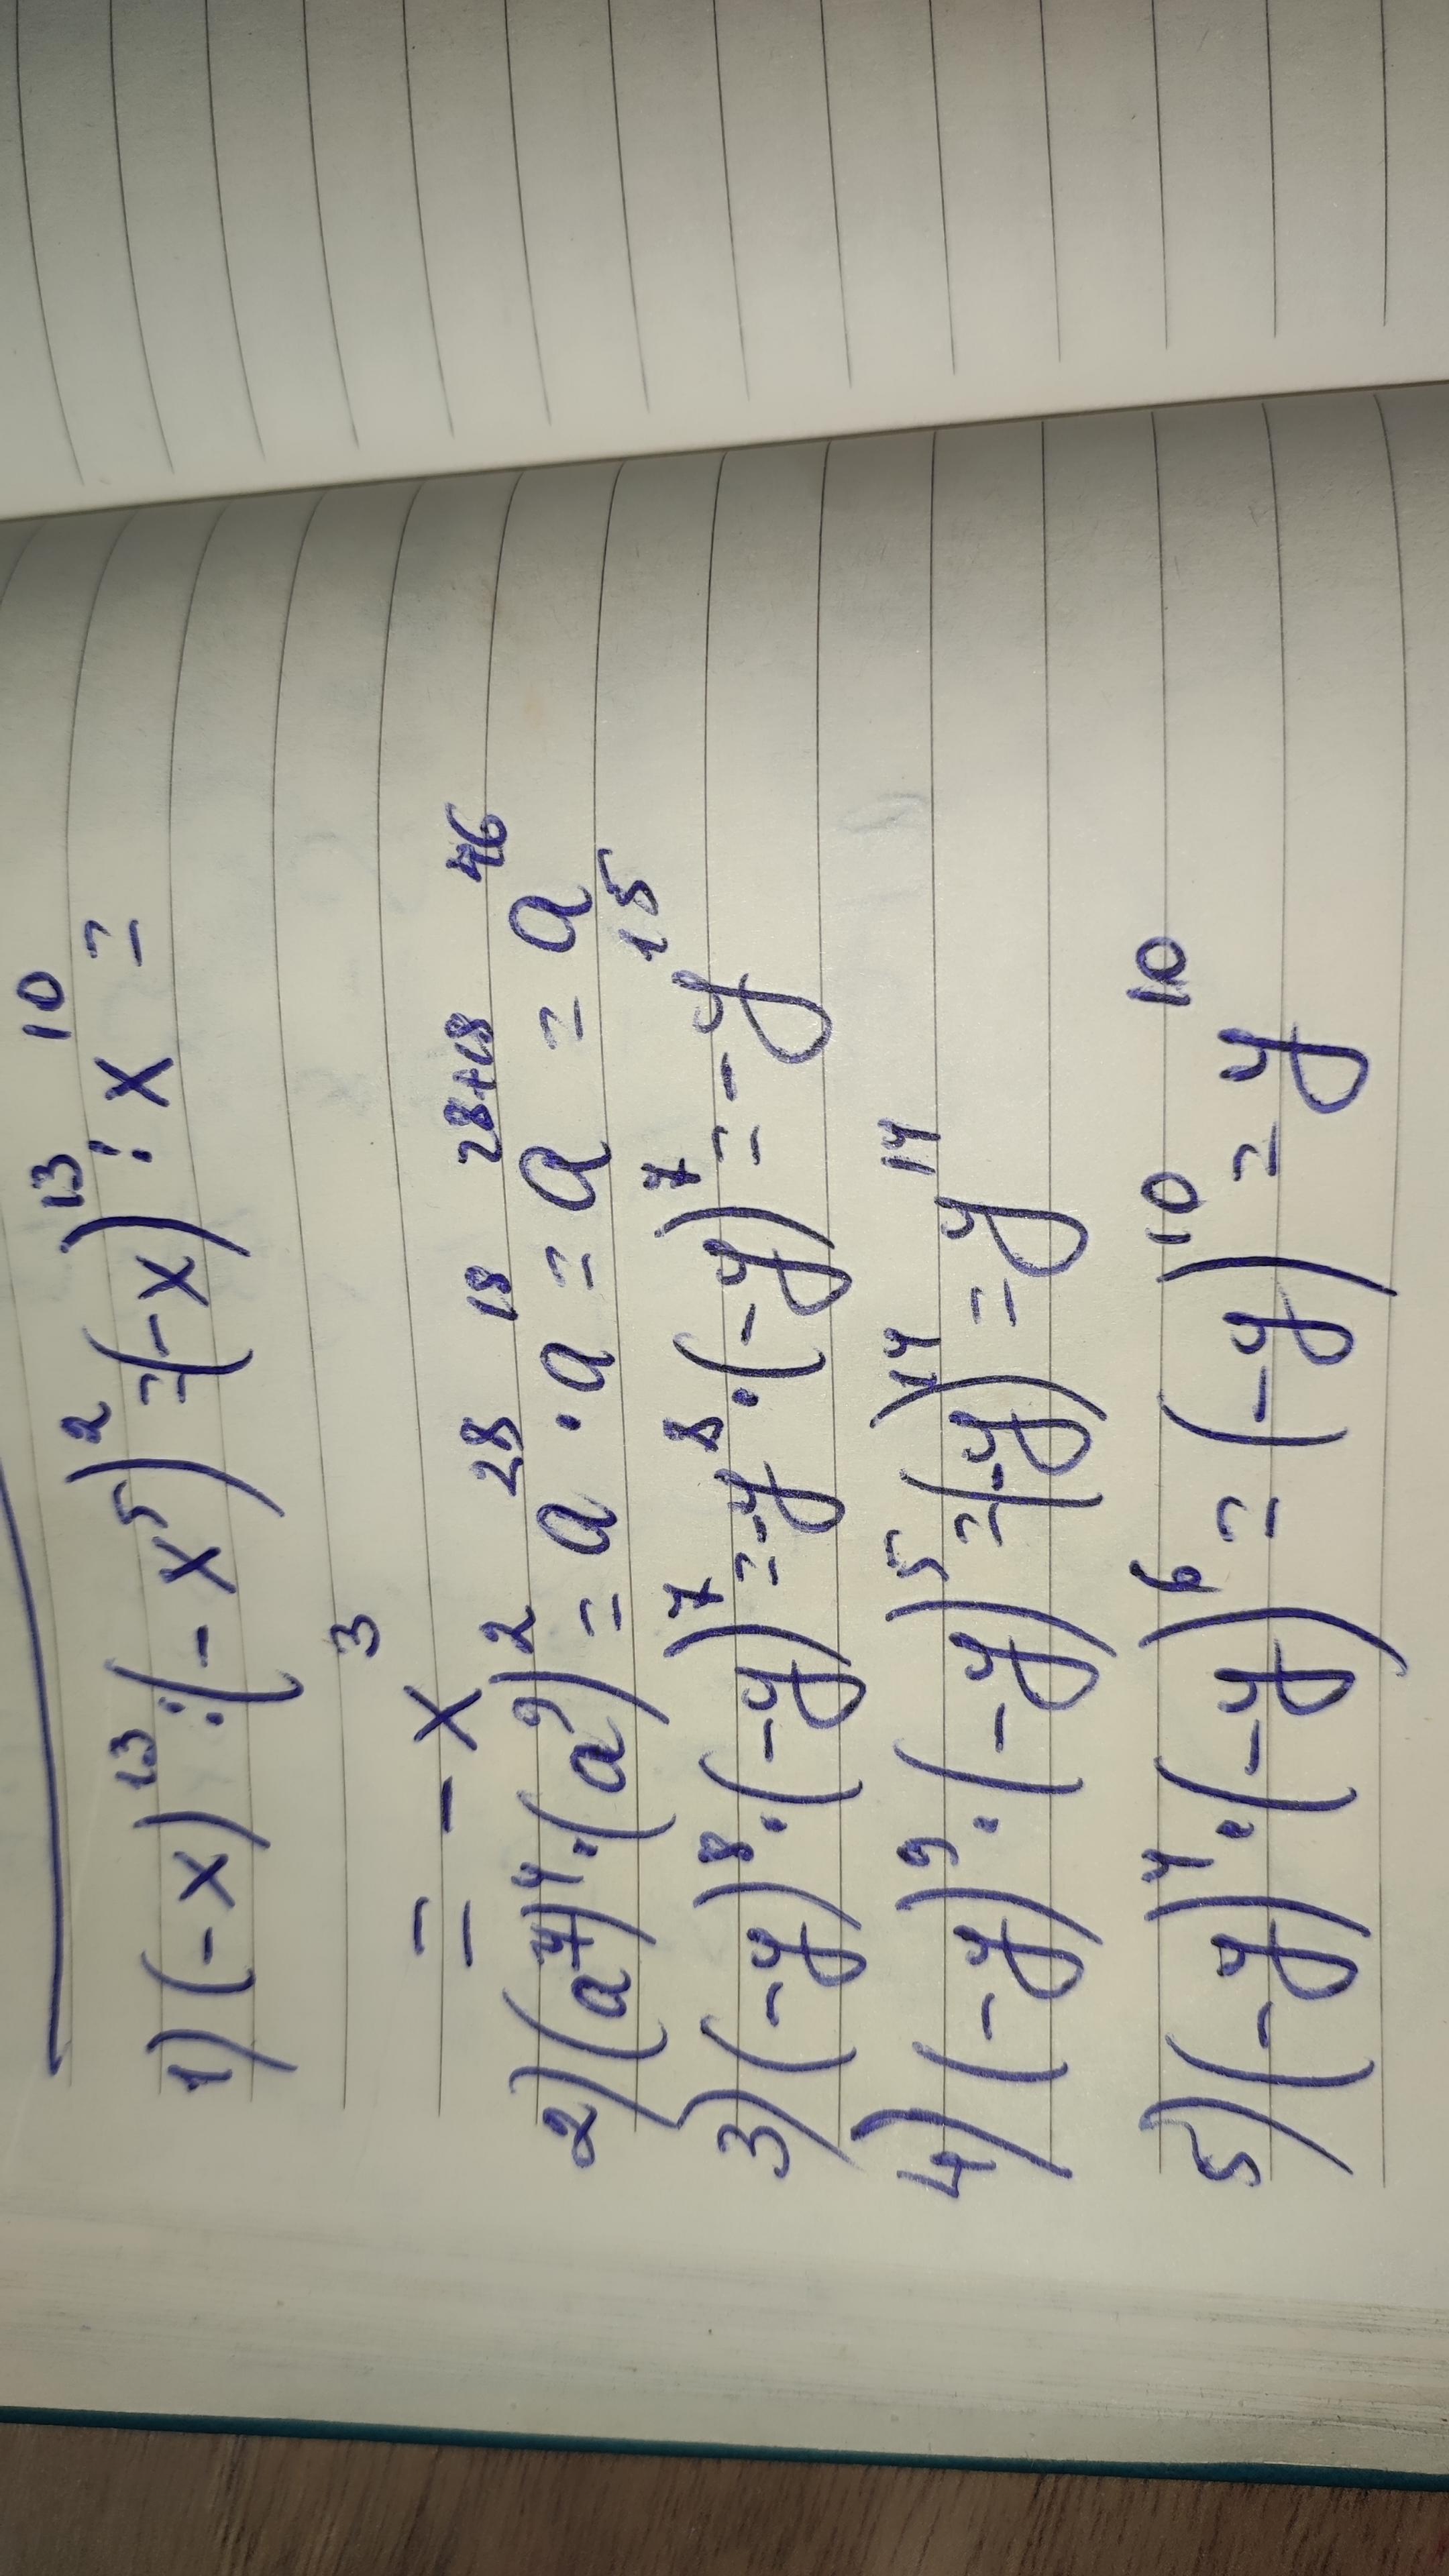 1) (-x)¹³ : (-x⁵)² = (-x)¹³ : x¹⁰ =
= -x³
2) (a⁷)⁴ · (a⁹)² = a²⁸ · a¹⁸ = a²⁸⁺¹⁸ = a⁴⁶
3) (-y)⁸ · (-y)⁷ = -y⁸ · (-y)⁷ = -y¹⁵
4) (-y)⁹ · (-y)⁵ = (-y)¹⁴ = y¹⁴
5) (-y)⁴ · (-y)⁶ = (-y)¹⁰ = y¹⁰